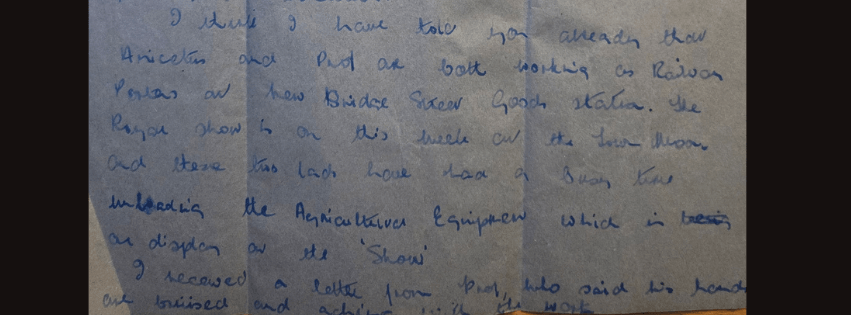 I think I have told you already that
Anicetus and Prof are both working as Railway
Porters at New Bridge Street Goods station. The
Royal show is on this week at the Town Moor
and these two lads have had a Busy time
unloading the Agricultural Equipment which is
on display at the 'Show'
I received a letter from Prof, who said his hands
are bruised and aching with the work